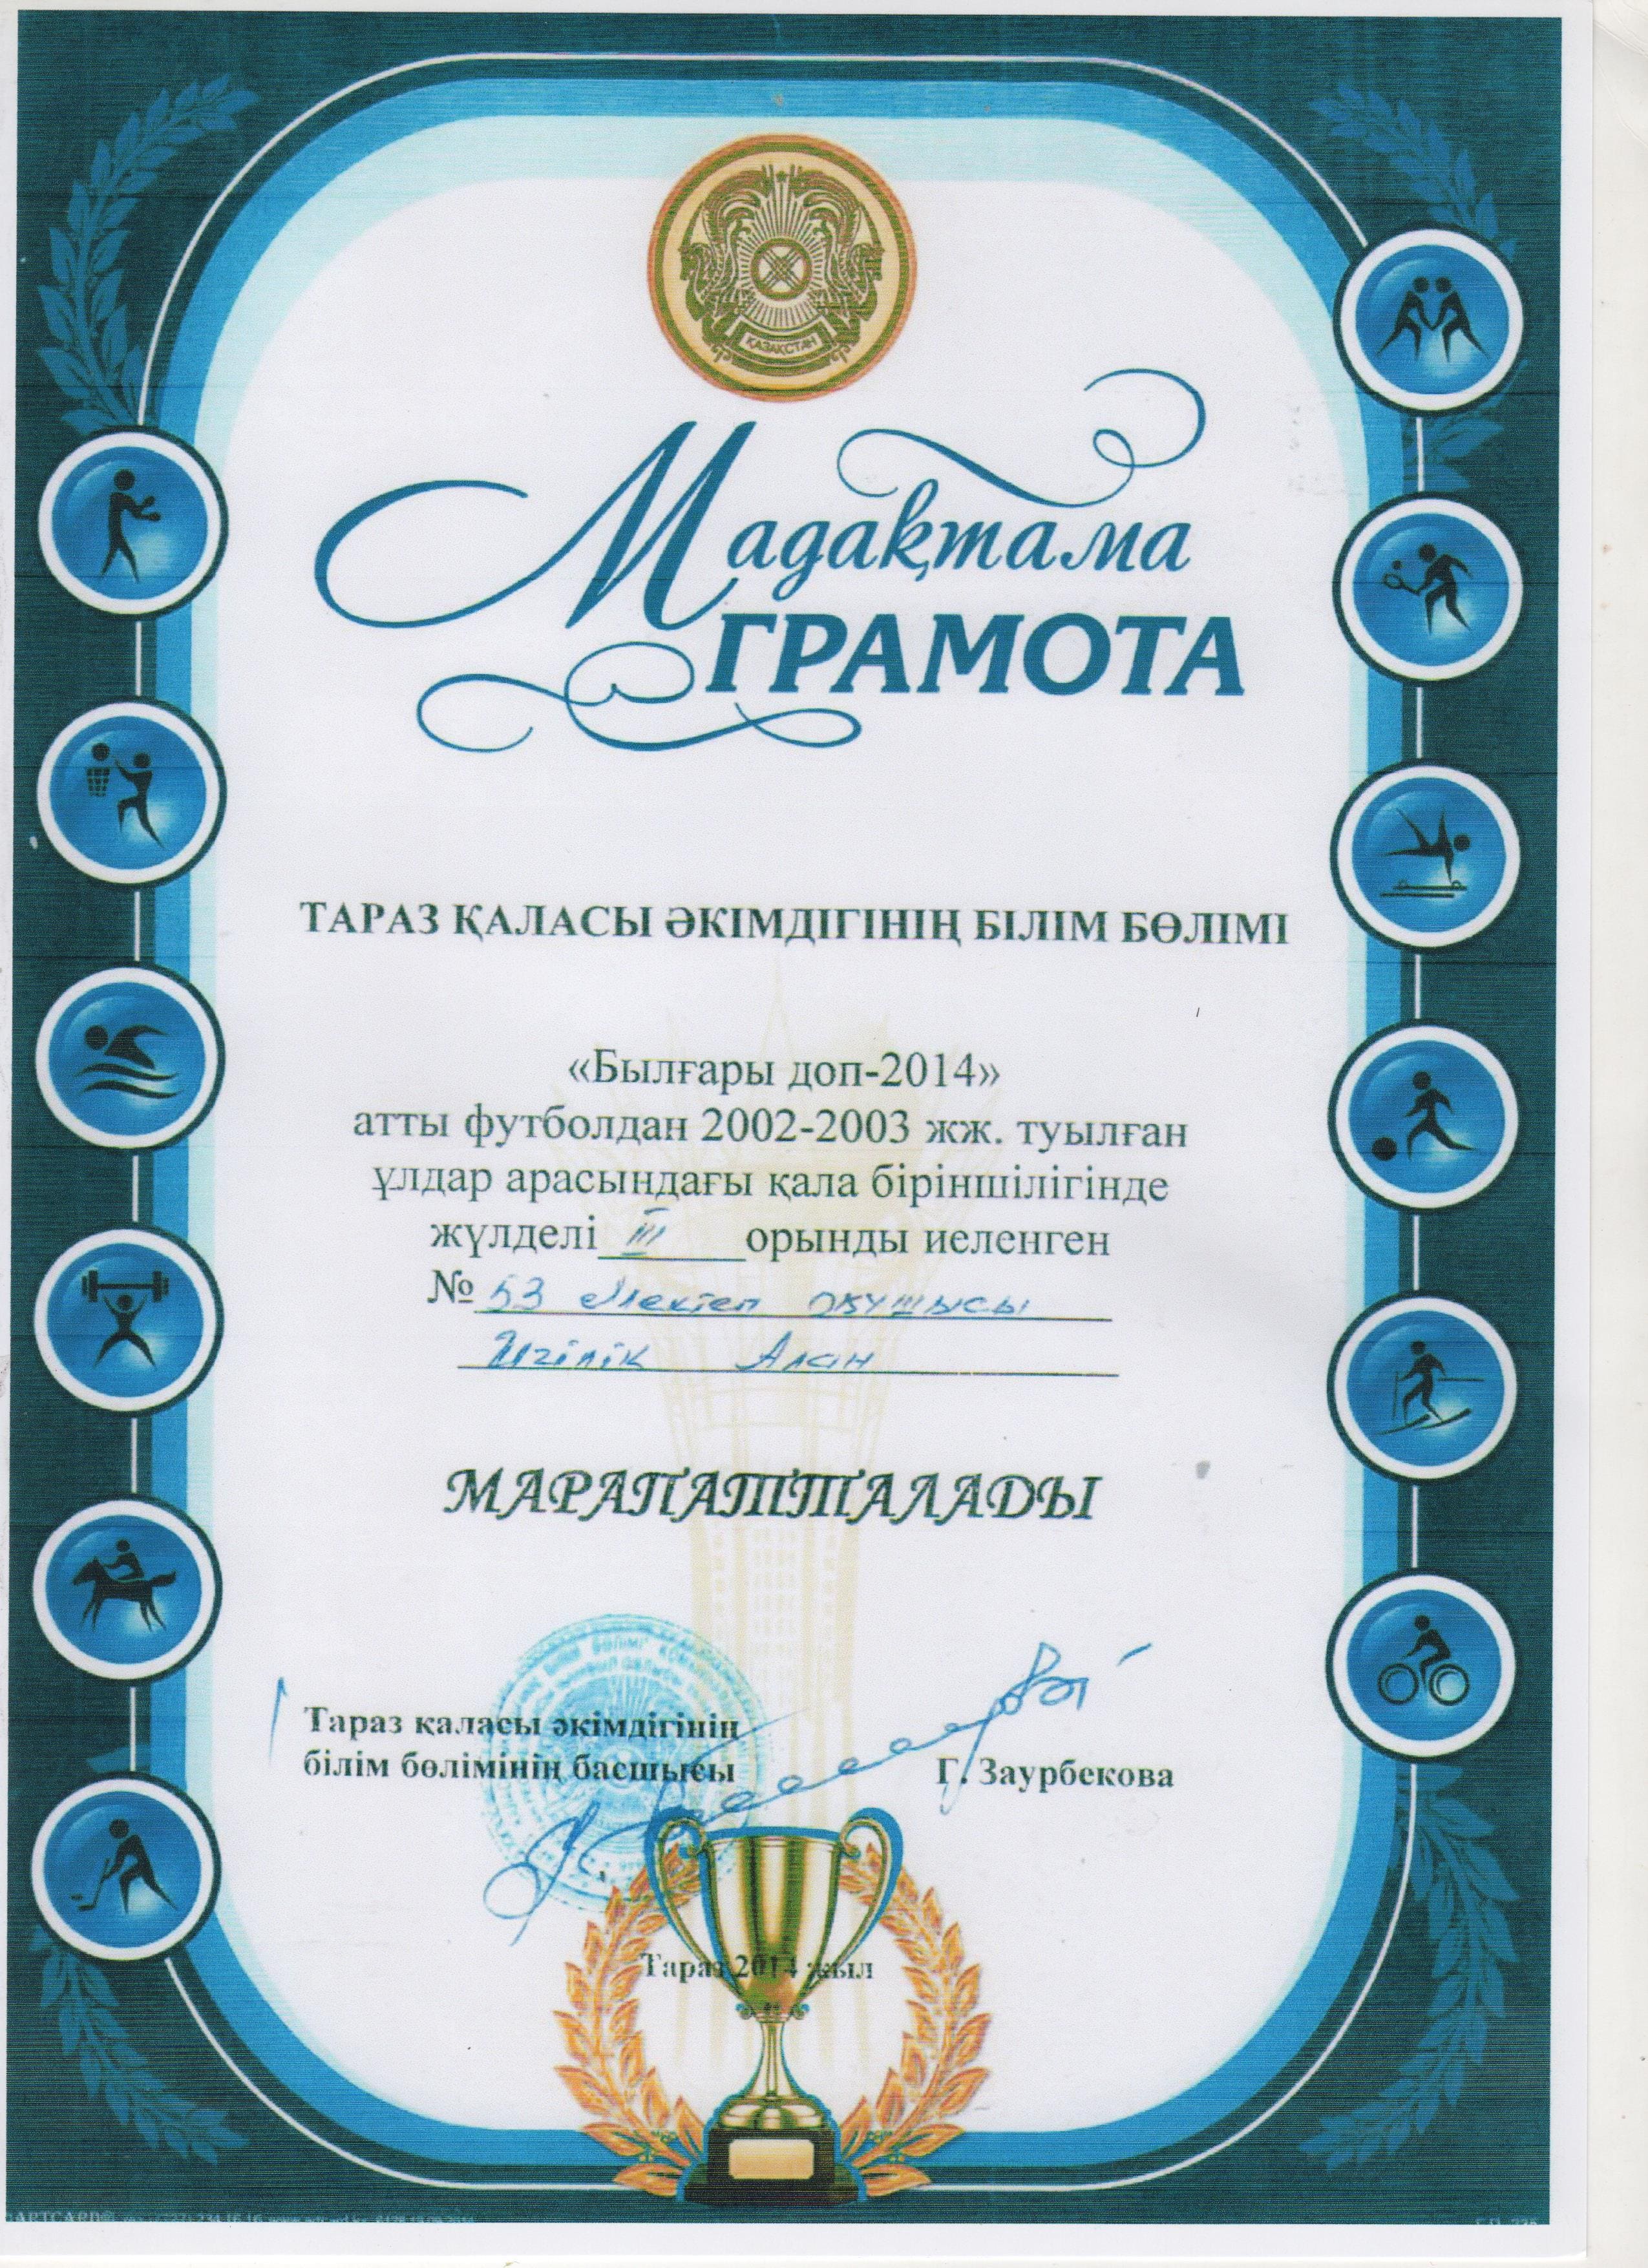 ҚАЗАҚСТАН
Мадақтама
ГРАМОТА
ТАРАЗ ҚАЛАСЫ ӘКІМДІГІНІҢ БІЛІМ БӨЛІМІ
«Былғары доп-2014»
атты футболдан 2002-2003 жж. туылған
ұлдар арасындағы қала біріншілігінде
жүлделі III орынды иеленген
№ 53 мектеп оқушысы
Игілік Алан
МАРАПАТТАЛАДЫ
Тараз қаласы әкімдігінің
білім бөлімінің басшысы Г. Заурбекова
Тараз 2014 жыл